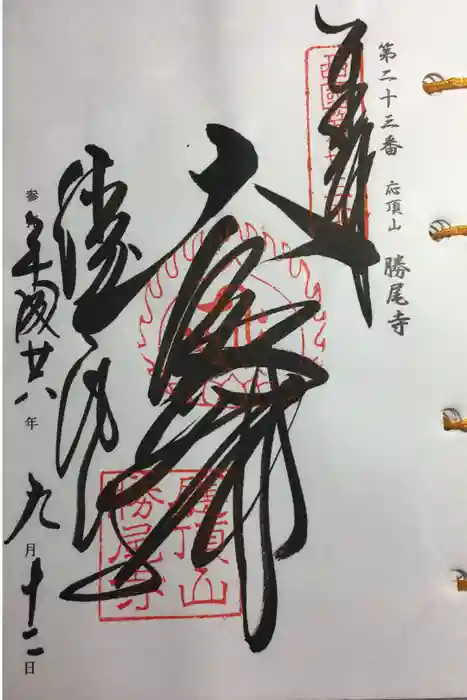 第二十三番 応頂山 勝尾寺
奉拝
勝尾寺
参 平成廿八年九月十二日
應頂山
勝尾寺